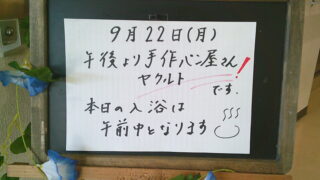 9月22日(月)
午後より手作パン屋さん
ヤクルト
です!
本日の入浴は
午前中となります